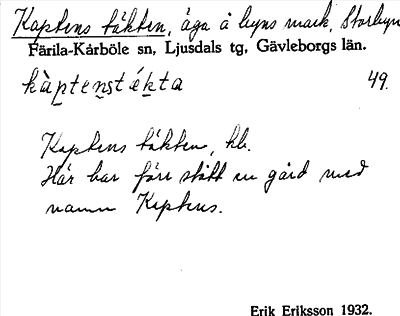 Kaptens täkten, äga å byns mark, Storbyn
Färila-Kårböle sn, Ljusdals tg, Gävleborgs län.
kàpten̥sték̲ta 49.
Kaptens täkten, hb.
Här har förr stått en gård med
namn Keptens.
Erik Eriksson 1932.